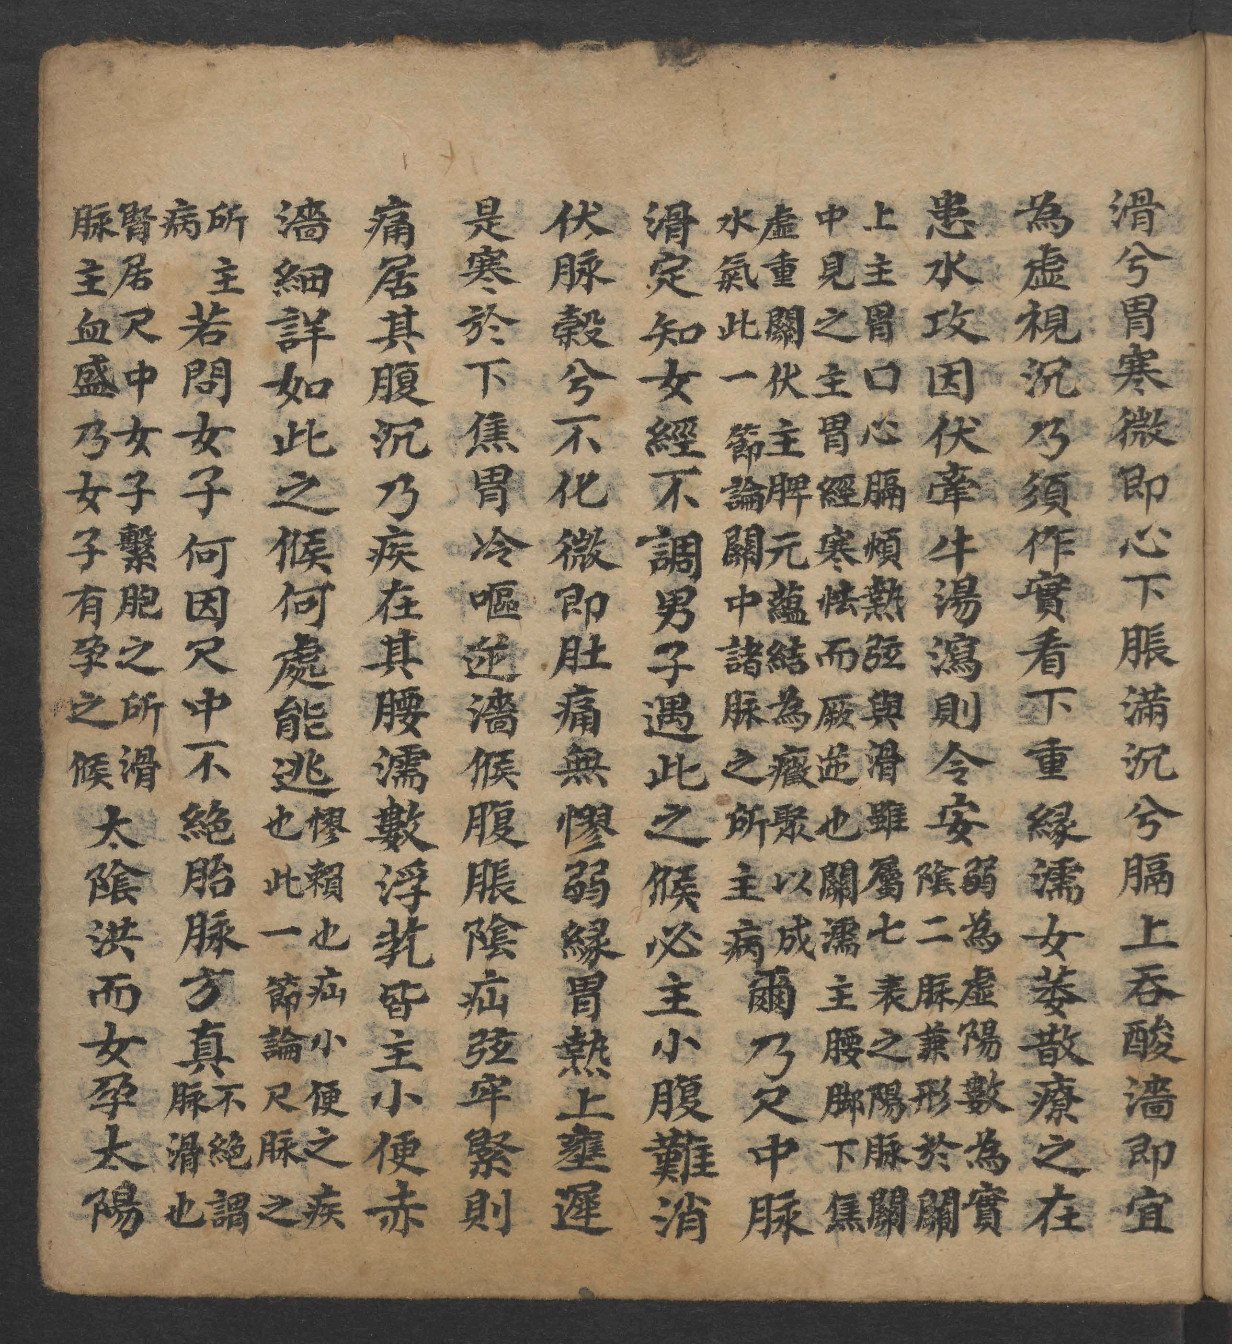 滑兮胃寒微即心下脹滿沉兮膈上吞酸濇即宜
為虛視沉乃須作實看下重緣濡女萎散療之在
患水攻因伏牽牛湯瀉則令安弱為虛陽數為實
陰二脉兼形於關
上主胃口心膈煩熱弦與滑雖屬七表之陽脉關
中見之主胃經寒怯而厥逆也關濡主腰脚下焦
虛重關伏主脾元蘊結為癥聚以成
水氣此一節論關中諸脉之所主病爾乃尺中脉
滑定知女經不調男子遇此之候必主小腹難消
伏脉榖兮不化微即肚痛無憀弱緣胃熱上壅遲
是寒於下焦胃冷嘔逆濇候腹脹陰疝弦牢緊則
痛居其腹沉乃疾在其腰濡數浮芤皆主小便赤
濇細詳如此之候何處能逃憀賴也疝小便之疾
也此一節論尺脉之
所主
病若問女子何因尺中不絕胎脉方真不絕謂
脉滑也
腎居尺中女子繫胞之所滑
脉主血盛乃女子有孕之候太陰洪而女孕太陽